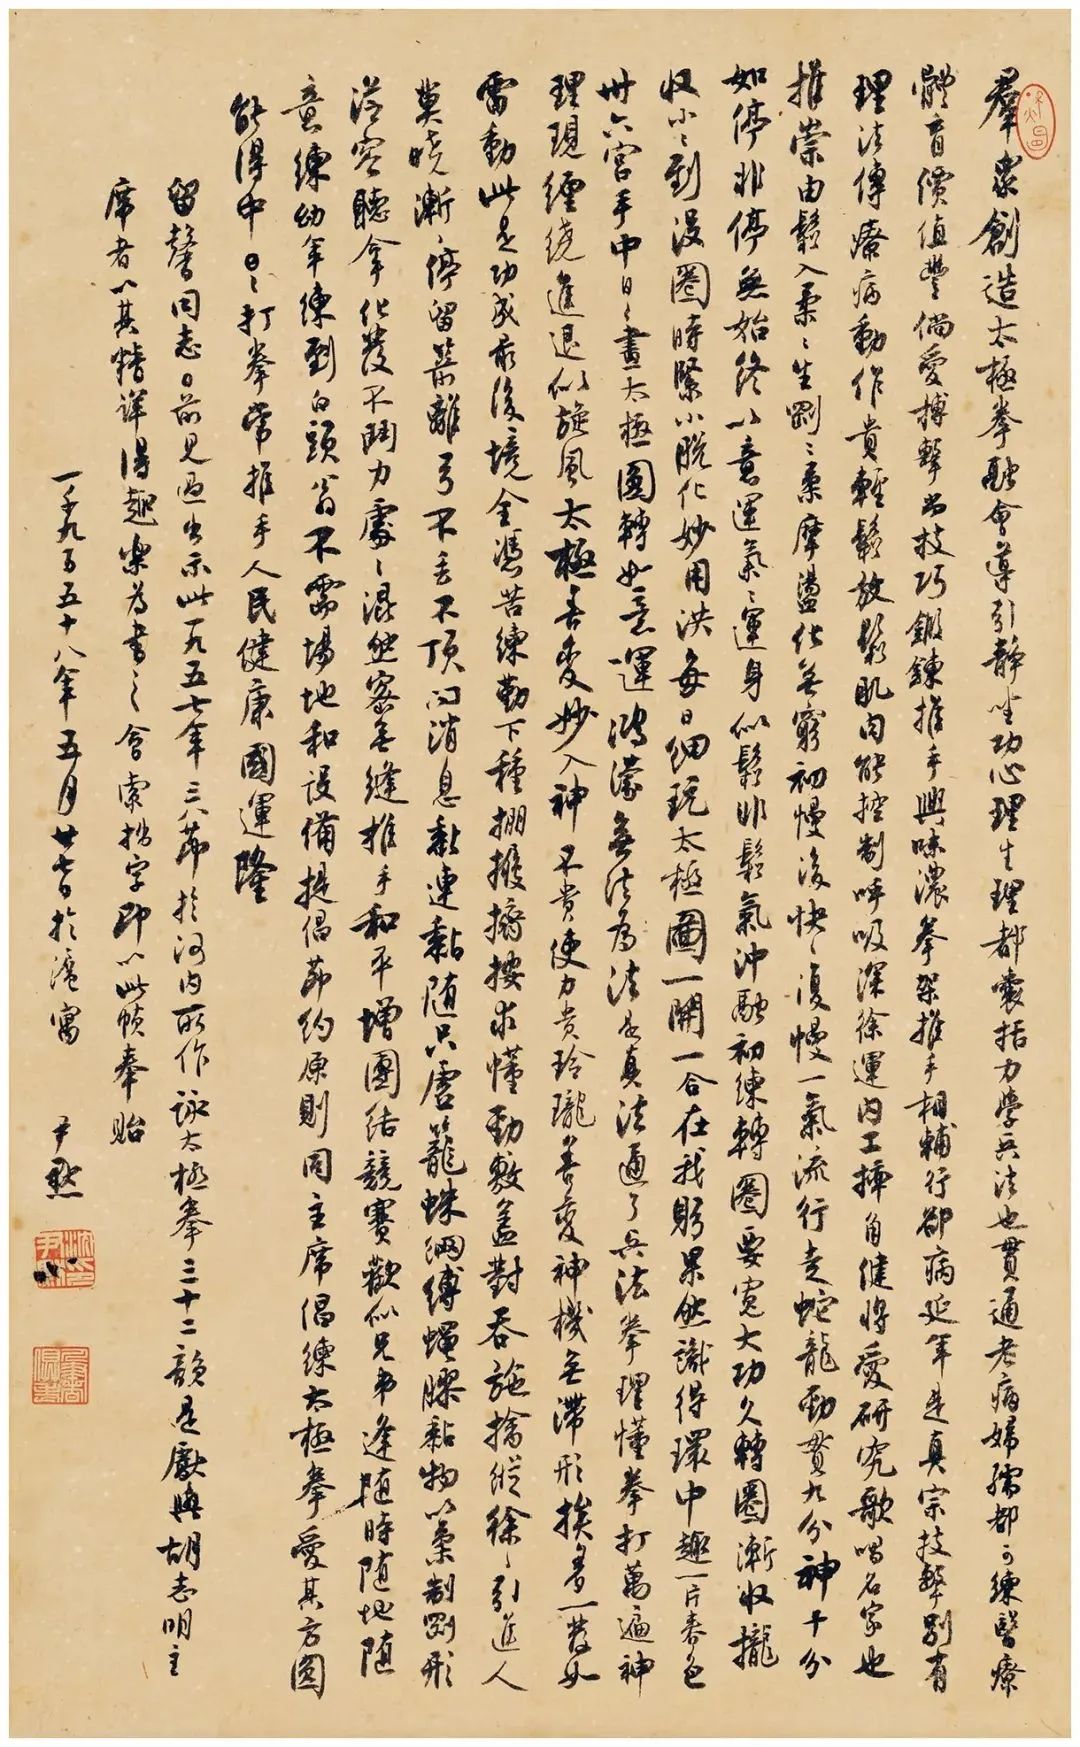 羣眾創造太極拳融會導引靜坐功心理生理都囊括力學兵法也貫通老病婦孺都可練醫療
體育價值豐倘愛搏擊尚技巧鍛鍊推手興味濃拳架推手相輔行卻病延年是真宗技擊別有
理法傳療病動作貴輕鬆放鬆肌肉能控制呼吸深徐運內工摔角健將愛研究歌唱名家也
推崇由鬆入柔〻生剛〻柔摩盪化無窮初慢後快〻復慢一氣流行走蛇龍勁貫九分神十分
如停非停無始終以意運氣〻運身似鬆非鬆氣沖融初練轉圈要寬大功久轉圈漸收攏
收小〻到沒圈時緊小脫化妙用洪每日細玩太極圖一開一合在我躬果然識得環中趣一片春色
卅六宮手中日〻畫太極圓轉如意運鴻濛無法為法是真法通了兵法拳理懂拳打萬遍神
理現纏繞進退似旋風太極善變妙入神不貴使力貴玲瓏善變神機無滯形挨着一發如
雷動此是功成最後境全憑苦練勤下種掤擺擠按求懂勁敷蓋對吞施擒縱徐〻引進人
莫曉漸〻停留箭離弓不丟不頂問消息黏連黏隨只虛籠蛛網縛蠅膠黏物以柔制剛形
從容聽拿化發不鬥力處〻混然密無縫推手和平增團結競賽歡似兄弟逢隨時隨地隨
意練幼年練到白頭翁不需場地和設備提倡節約原則同主席倡練太極拳愛其方圓
能得中日〻打拳常推手人民健康國運隆
留馨同志日前見過出示此一九五七年三八節於河內所作詠太極拳三十二韻是獻與胡志明主
席者以其精詳得趣樂為書之會索拙字即以此幀奉貽
一千九百五十八年五月廿七日於滬寓 尹默